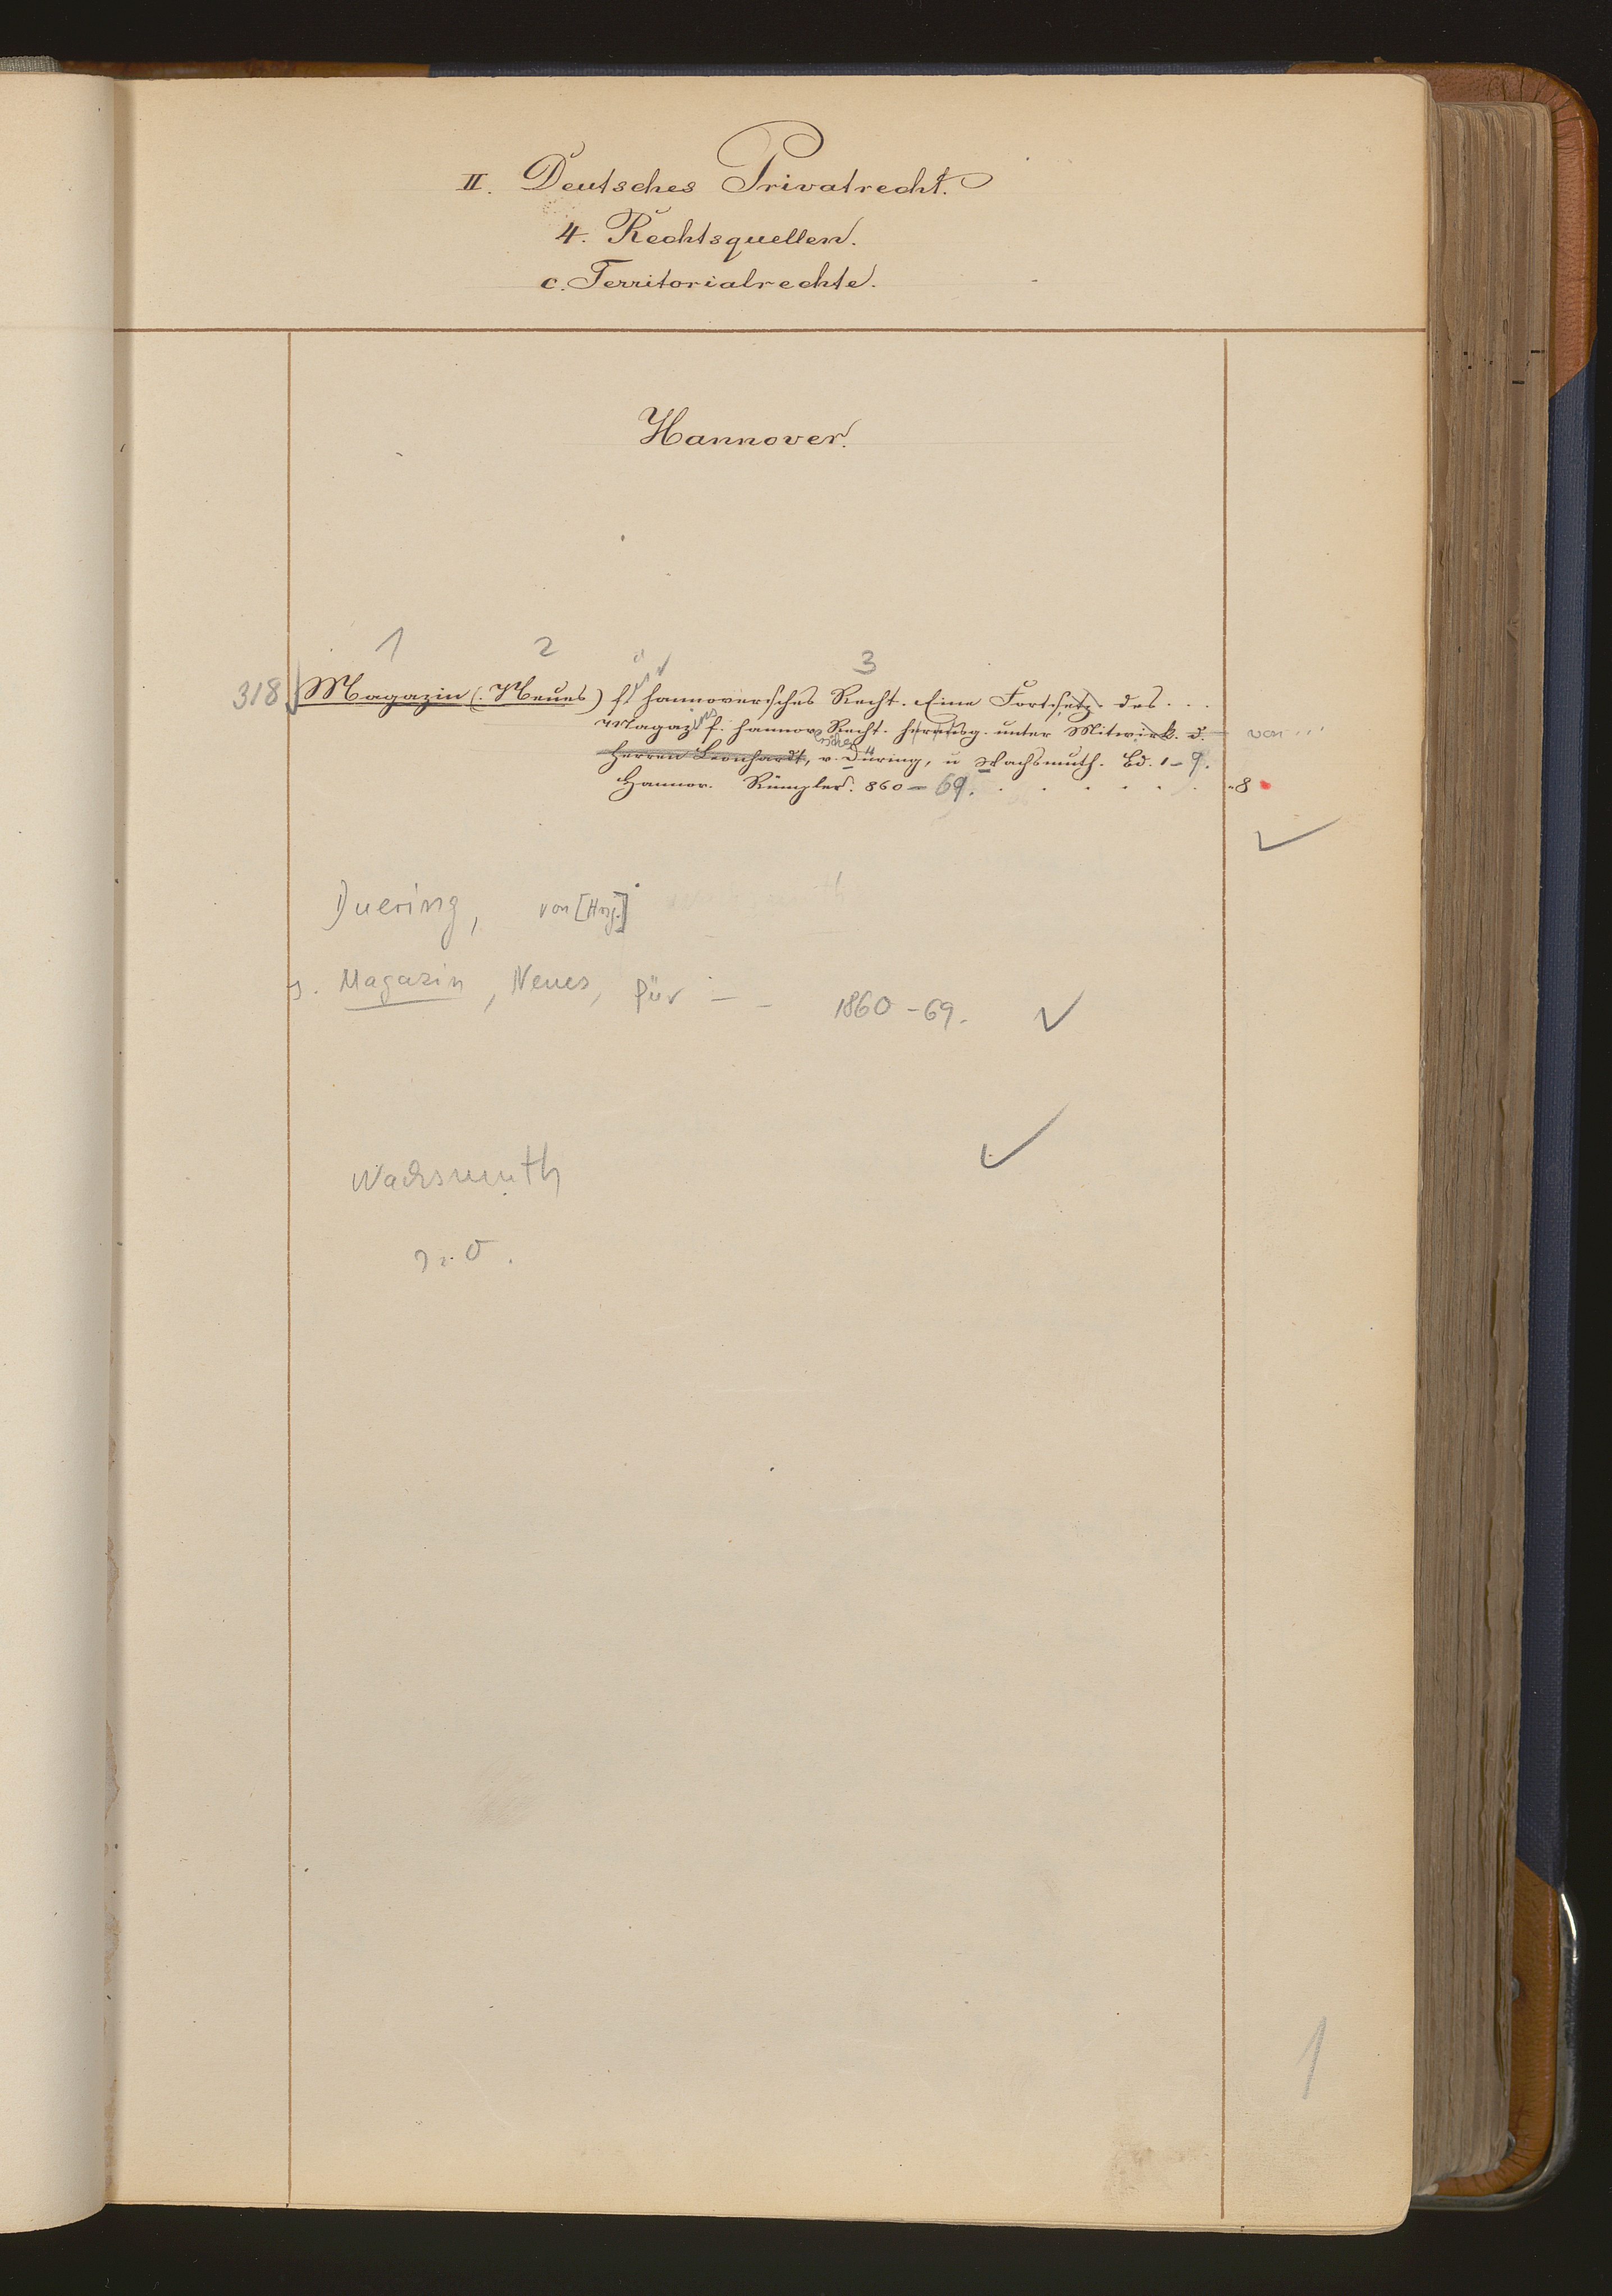 II. Deutsches Privatrecht.
4. Rechtsquellen.
c. Territorialrechte.
Hannover.
1 2 3
318 Magazin (. Neues) f. hannoverisches Recht. Eine Fortsetz. des . . .
Magaz. f. hannov. Recht. herausg. unter Mitwirk. d. von ...
Herren Leonhardt, v. Düring, u Wachsmuth. Bd. 1-9.
Hannov. Rümpler. 860-69. 8
Duering, von [Hrsg.]
s. Magazin, Neues, für - - 1860-69.
Wachsmuth
1